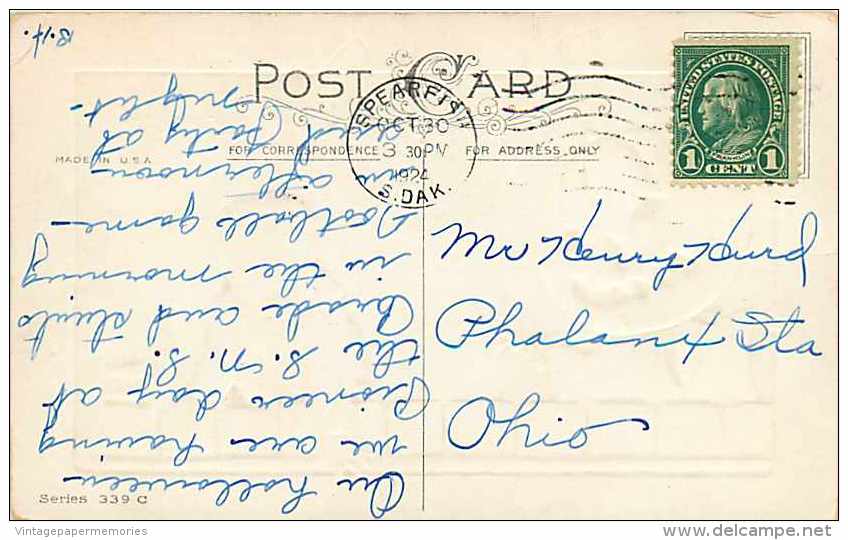 POST CARD
FOR CORRESPONDENCE
FOR ADDRESS ONLY
MADE IN U.S.A.
SPEARFISH
OCT 30
3 30 PM
1924
S. DAK.
UNITED STATES POSTAGE
FRANKLIN
1 CENT 1
Mr Henry Hurd
Phalanx Sta
Ohio
On halloween
we are having
Pioneer day at
the S.N.S.
Parade and stunts
in the morning
Football game
in afternoon
and Party at
night-
B.H.
Series 339 C
Vintagepapermemories
http://www.delcampe.net